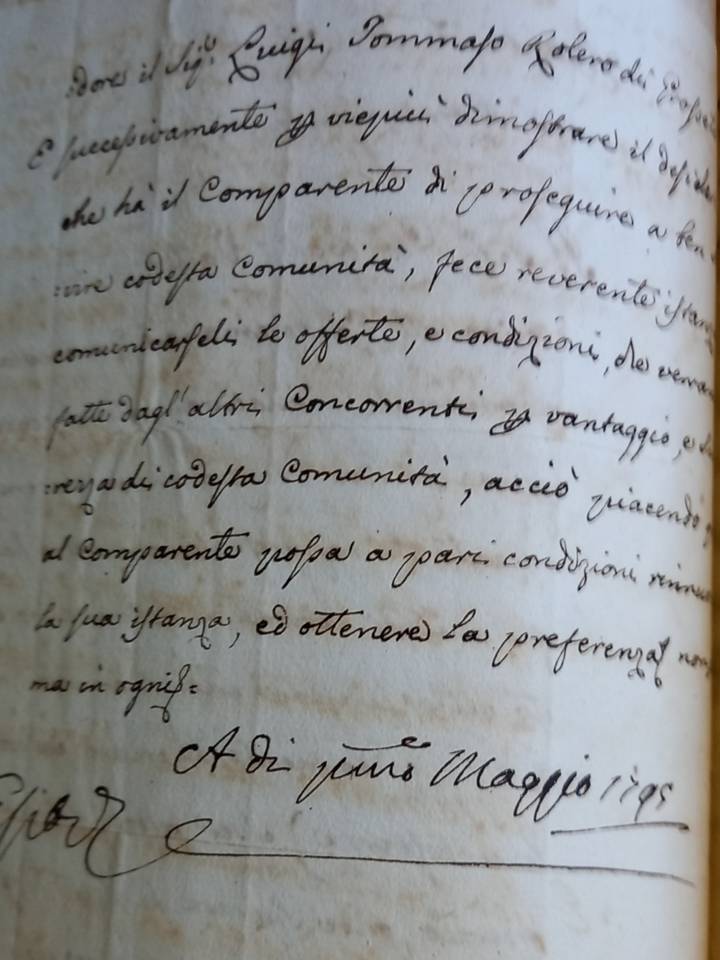 :dore il Sig.r Luigi Tommaso Rolero dei
E successivamente p viepiù dimostrare il desid
che hà il Comparente di proseguire a ben
:vire codesta Comunità, fece reverente istan
comunicarseli le offerte, e condizioni, che verran
fatte dagl'altri Concorrenti p vantaggio, e
:rezza di codesta Comunità, acciò piacendo
al Comparente possa a pari condizioni rinnu
la sua istanza, ed ottenere la preferenza non
ma in ogni
A di pmo Maggio 1795